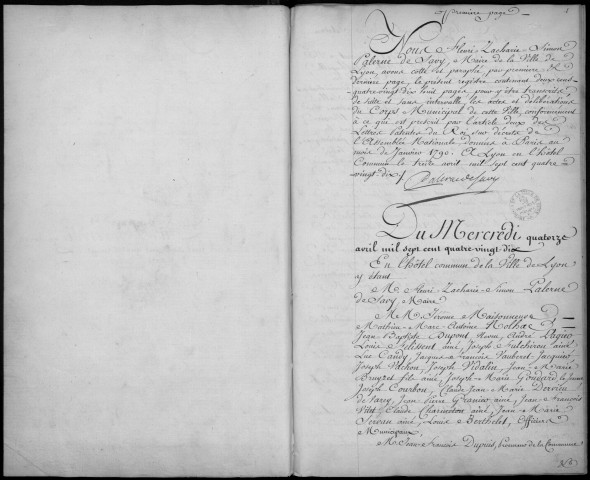 Première page
1
Nous Henri-Zacharie-Simon
Palerne de Savy, Maire de la Ville de
Lyon, avons cotté et paraphé par première et
derniere page, le présent registre contenant deux cent
quatre vingt dix huit pages pour y être transcrits
de suite et sans intervalle, les actes et délibérations
du Corps Municipal de cette Ville, conformément
à ce qui est prescrit par l'article deux des
Lettres Patentes du Roi, sur décrets de
l'Assemblée Nationale, données à Paris au
mois de Janvier 1790. A Lyon en l'hôtel
Commun le treize avril mil sept cent quatre
vingt-dix
Palerne de Savy
Du Mercredi quatorze
avril mil sept cent quatre-vingt dix
En l'hôtel commun de la Ville de Lyon
y étant
M. Henri-Zacharie-Simon Palerne
de Savy, Maire
M.M. Jérome Maisonneuve
Mathieu-Marc-Antoine Nolhac
Jean Baptiste Dupont, André
Louis Felissent ainé, Joseph Fulchiron ainé
Luc Candy, Jacques-François Vauberet-Jacquier
Joseph Vachon, Joseph Vidalin, Jean-Marie
Bruyzet fils ainé, Joseph-Marie Goudard le jeune
Joseph Courbon, Claude Jean-Marie Dervieu
de Varey, Jean Pierre Granier ainé, Jean-François
Vitet, Claude Charmetton ainé, Jean-Marie
Servan ainé, Louis Berthelet, Officiers
Municipaux,
M. Jean-François Dupuis, de la Commune